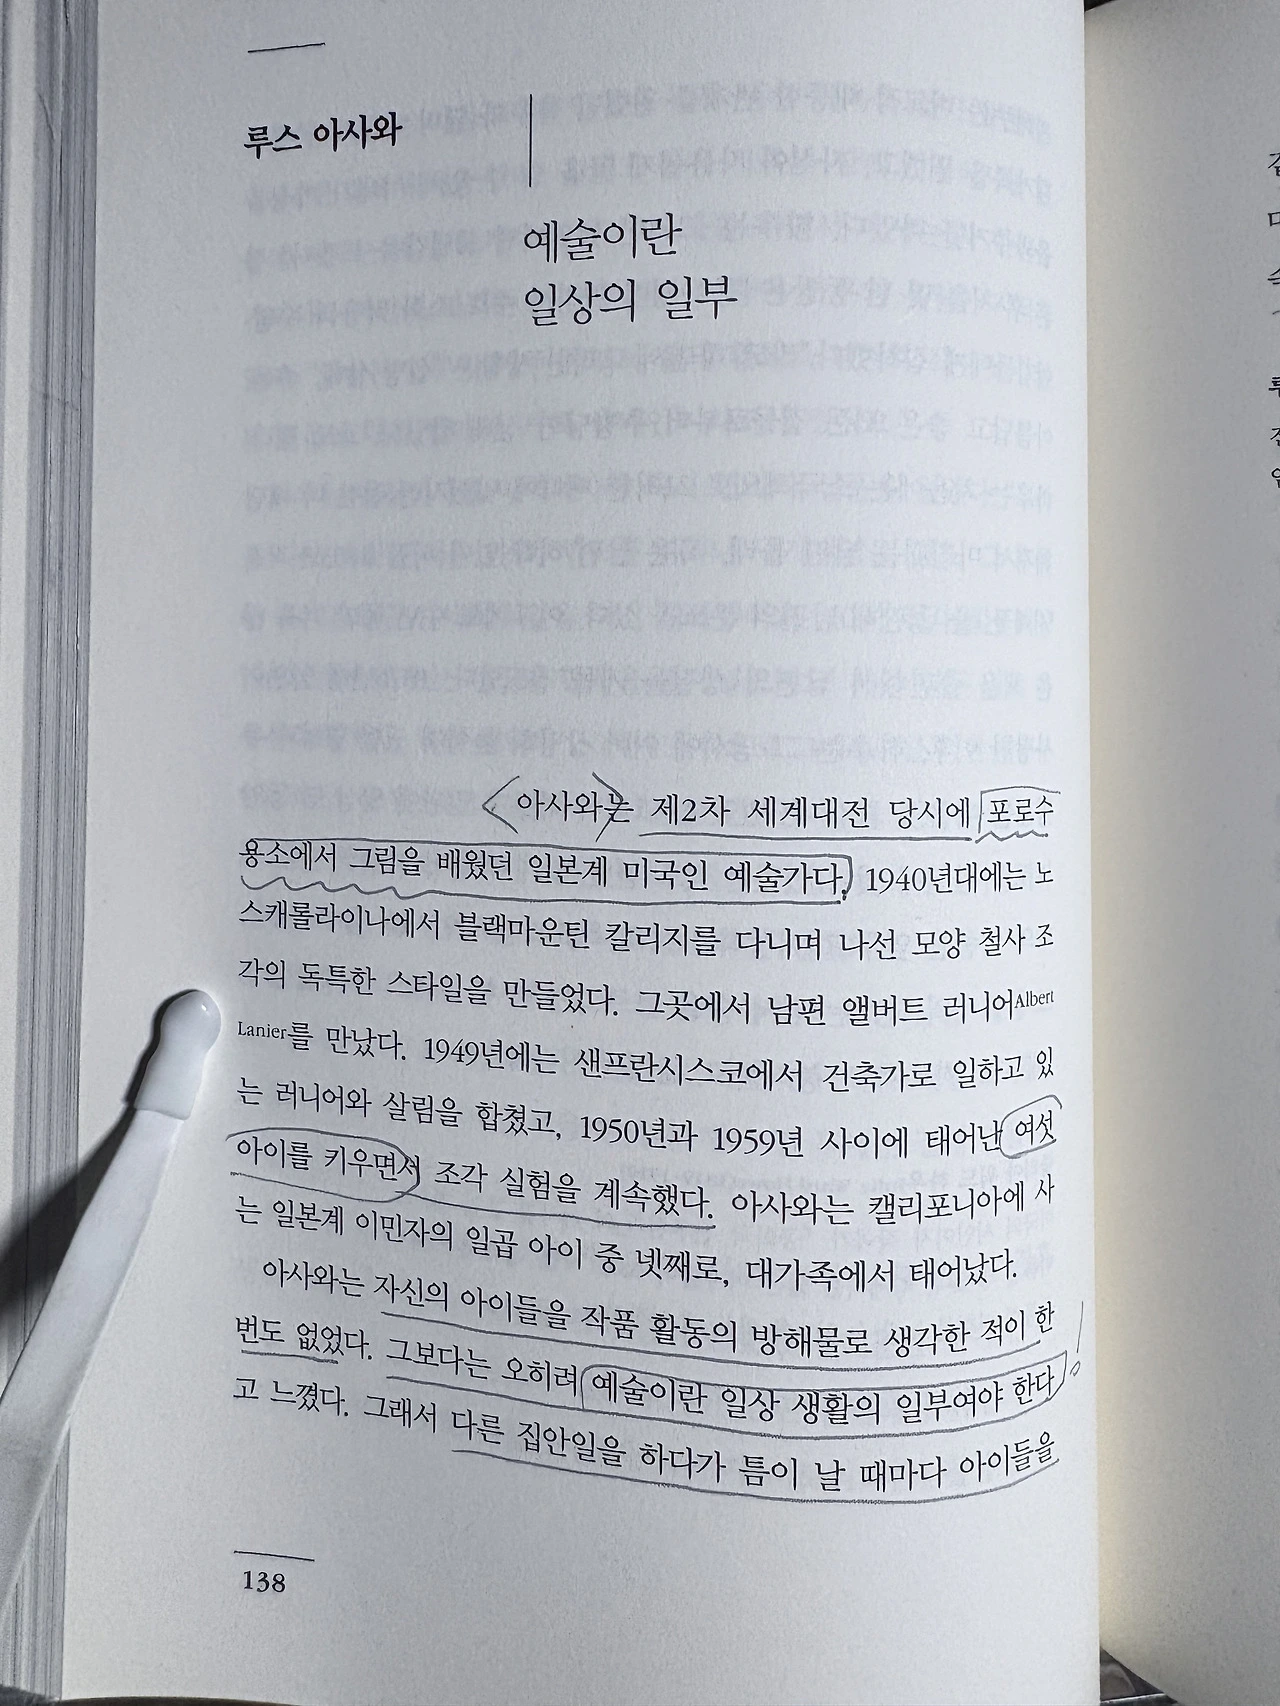 루스 아사와
예술이란
일상의 일부
아사와는 제2차 세계대전 당시에 포로수
용소에서 그림을 배웠던 일본계 미국인 예술가다. 1940년대에는 노
스캐롤라이나에서 블랙마운틴 칼리지를 다니며 나선 모양 철사 조
각의 독특한 스타일을 만들었다. 그곳에서 남편 앨버트 러니어Albert
Lanier를 만났다. 1949년에는 샌프란시스코에서 건축가로 일하고 있
는 러니어와 살림을 합쳤고, 1950년과 1959년 사이에 태어난 여섯
아이를 키우면서 조각 실험을 계속했다. 아사와는 캘리포니아에 사
는 일본계 이민자의 일곱 아이 중 넷째로, 대가족에서 태어났다.
아사와는 자신의 아이들을 작품 활동의 방해물로 생각한 적이 한
번도 없었다. 그보다는 오히려 예술이란 일상 생활의 일부여야 한다
고 느꼈다. 그래서 다른 집안일을 하다가 틈이 날 때마다 아이들을
138